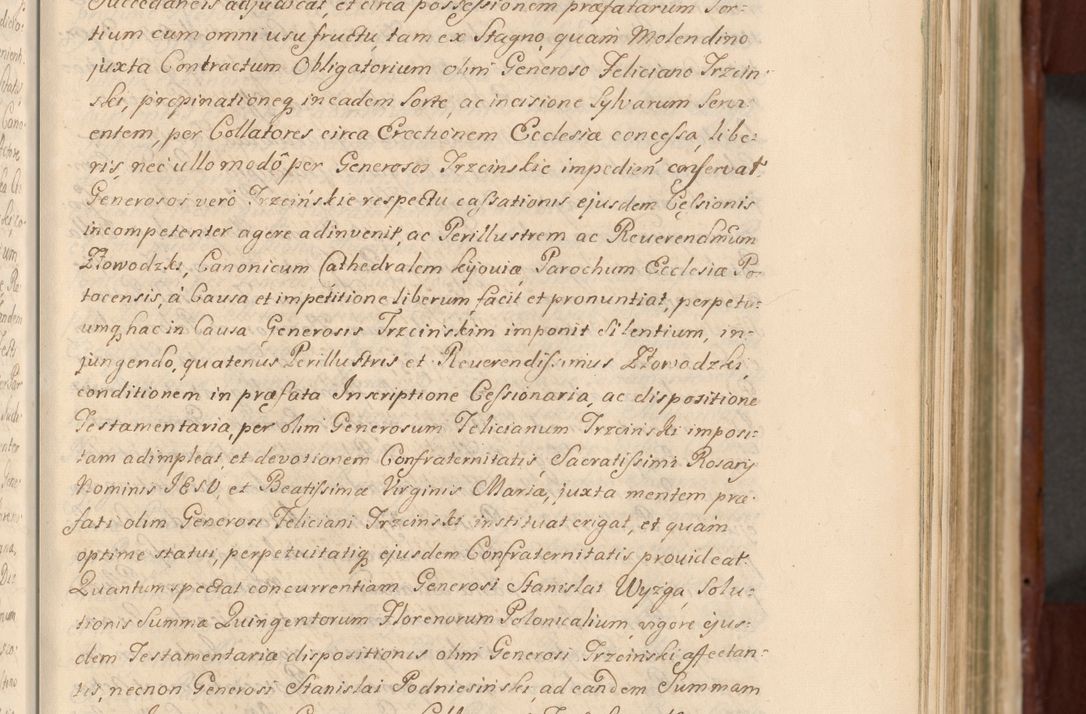 Succedaneis adjudicat, et circa possessionem præfatarum Sor-
tium cum omni usufructu, tam ex Stagno, quam Molendino
juxta Contractum Obligatorium olim Generoso Feliciano Trzciń-
ski, propinationeq in eadem Sorte, ac incisione Sylvarum Servi-
entem, per Collatores circa Erectionem Ecclesiæ concessa, libe-
ris, nec ullo modô per Generosos Trzcinskie impedien conservat.
Generosos verò Trzcińskie respectu cassationis ejusdem Cessionis
incompetenter agere adinvenit, ac Perillustrem ac Reverendmum
Złowodzki, Canonicum Cathedralem Kijoviæ Parochum Ecclesiæ Po-
tocensis, à Causa et impetitione liberum facit et pronuntiat, perpetu-
umq hac in Causa Generosis Trzcińskim imponit Silentium, in-
jungendo, quatenus Perillustris et Reverendissimus Złowodzki
conditionem in præfata Inscriptione Cessionaria, ac dispositione
Testamentaria, per olim Generosum Felicianum Trzcinski imposi-
tam adimpleat, et devotionem Confraternitatis Sacratissimi Rosarij
Nominis IESU, et Beatissimæ Virginis Mariæ, juxta mentem præ-
fati olim Generosi Feliciani Trzcinski instituat erigat, et quàm
optime statui, perpetuitatiq ejusdem Confraternitatis provideat.
Quantum spectat concurrentiam Generosi Stanislai Wyzga, Solu-
tionis Summæ Quingentorum Florenorum Polonicalium, vigore ejus-
dem Testamentariæ dispositionis olim Generosi Trzcinski affectan-
tis, necnon Generosi Stanislai Podniesinski, ad eandem Summam